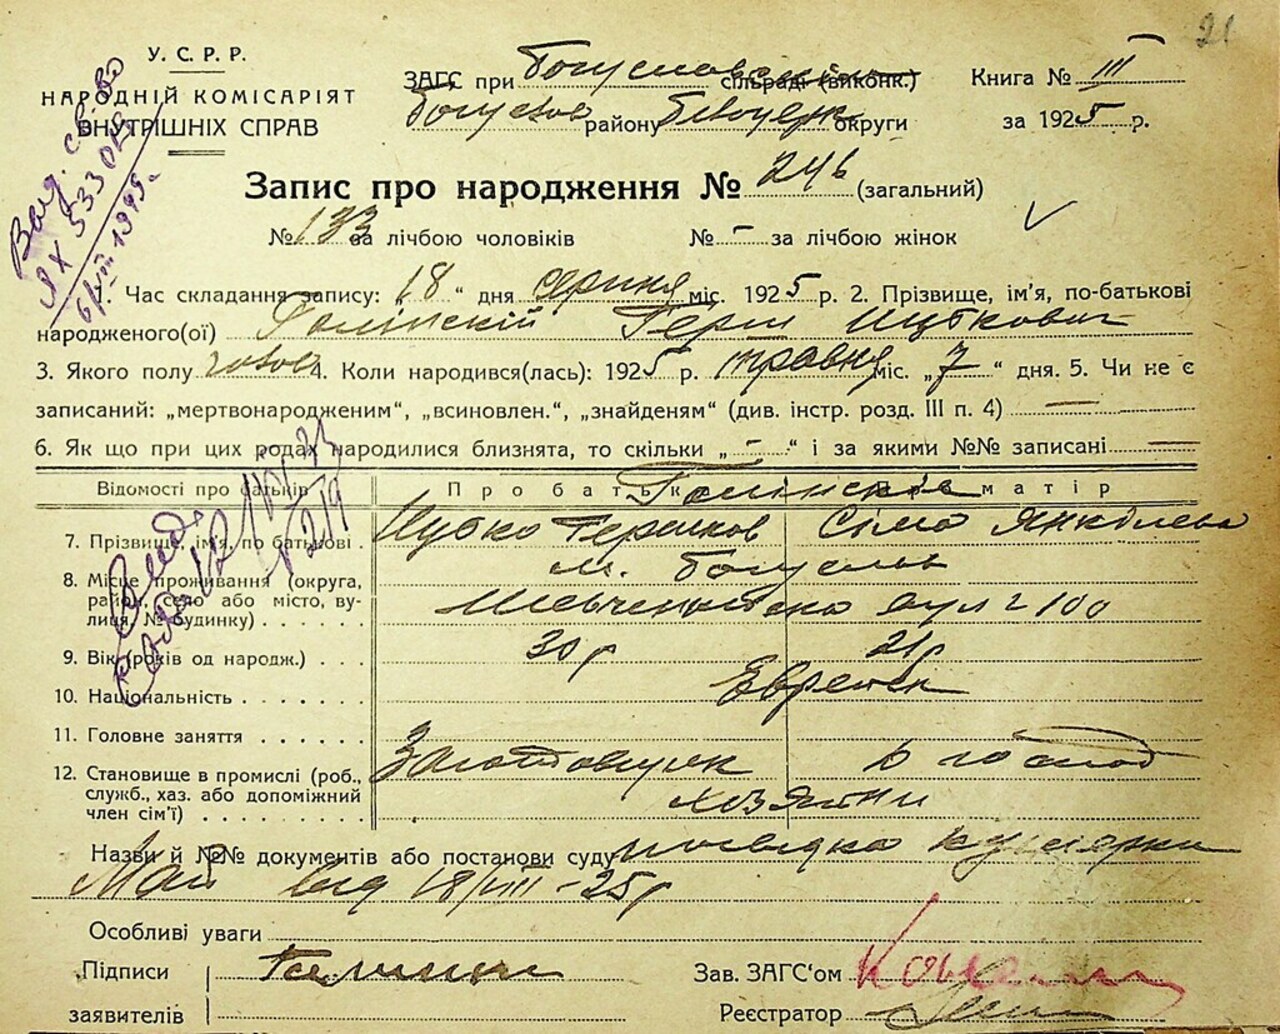 21
У. С. Р. Р.
НАРОДНІЙ КОМІСАРІЯТ
ВНУТРІШНІХ СПРАВ
ЗАГС при Богуславськ сільраді (виконк.)
Книга № III
району округи
за 1925 р.
Запис про народження № 246 (загальний)
№ 133 за лічбою чоловіків № – за лічбою жінок
1. Час складання запису: „18“ дня серпня міс. 1925 р. 2. Прізвище, ім’я, по-батькові
народженого(ої) Голінскій Герш Ицкович
3. Якого полу чолов 4. Коли народився(лась): 1925 р. травня міс. „7“ дня. 5. Чи не є
записаний: „мертвонародженим“, „всиновлен.“, „знайденям“ (див. інстр. розд. III п. 4) —
6. Як що при цих родах народилися близнята, то скільки „–“ і за якими №№ записані
Відомості про батьків
Про батька
Про матір
Голінскій
7. Прізвище, ім’я, по батькові
Ицко Гершков
Сіма Янкілева
8. Місце проживання (округа, район, село або місто, вулиця, № будинку)
м. Богуслав
Шевченківска вул 100
9. Вік (років од народж.)
30 р
21 р
10. Національність
Евреї
11. Головне заняття
12. Становище в промислі (роб., служб., хаз. або допоміжний член сім’ї)
Заготовщик
хозяїни
Назви й №№ документів або постанови суду посвідка
від 18/VIII – 25 р
Особливі уваги
Підписи
заявителів
Зав. ЗАГС‘ом
Реєстратор
Выд. св-во
ЯХ 533019
6/VIII 1945 г.